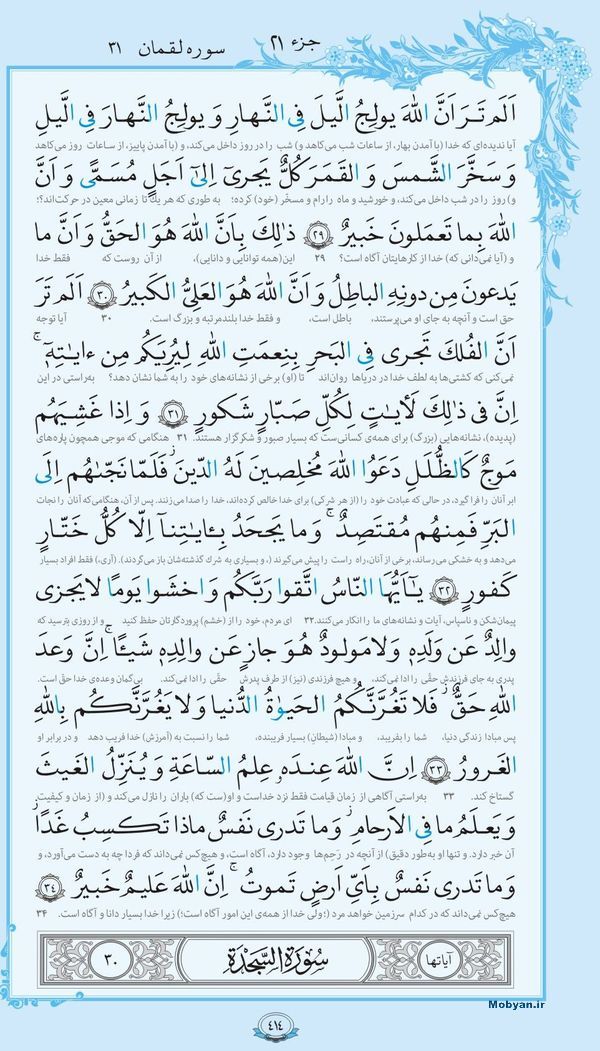 جزء ۲۱ سوره لقمان ۳۱
اَلَم تَرَ اَنَّ اللهَ يولِجُ الَّيلَ فِى النَّهارِ وَ يولِجُ النَّهارَ فِى الَّيلِ
آیا ندیده‌ای که خدا (با آمدن بهار، از ساعات شب می‌کاهد و) شب را در روز داخل می‌کند، و (با آمدن پاییز، از ساعات روز می‌کاهد
وَ سَخَّرَ الشَّمسَ وَ القَمَرَ كُلٌّ يَجرى اِلىٰ اَجَلٍ مُسَمًّى وَ اَنَّ
و) روز را در شب داخل می‌کند، و خورشید و ماه را رام و مسخّر (خود) کرده؛ به طوری که هر یک تا زمانی معین در حرکت‌اند؟!
اللهَ بِما تَعمَلونَ خَبيرٌ ﴿۲۹﴾ ذٰلِكَ بِاَنَّ اللهَ هُوَ الحَقُّ وَ اَنَّ ما
و (آیا نمی‌دانی که) خدا از کارهایتان آگاه است؟ ۲۹ این(همه توانایی و دانایی)، از آن روست که فقط خدا
يَدعونَ مِن دونِهِ الباطِلُ وَ اَنَّ اللهَ هُوَ العَلِىُّ الكَبيرُ ﴿۳۰﴾ اَلَم تَرَ
حق است و آنچه به جای او می‌پرستند، باطل است، و فقط خدا بلندمرتبه و بزرگ است. ۳۰ آیا توجه
اَنَّ الفُلكَ تَجرى فِى البَحرِ بِنِعمَتِ اللهِ لِيُرِيَكُم مِن ءايٰتِهِ ۚ
نمی‌کنی که کشتی‌ها به لطف خدا در دریاها روان‌اند تا (او) برخی از نشانه‌های خود را به شما نشان دهد؟ به‌راستی در این
اِنَّ فى ذٰلِكَ لَأيٰتٍ لِكُلِّ صَبّارٍ شَكورٍ ﴿۳۱﴾ وَ اِذا غَشِيَهُم
(پدیده)، نشانه‌هایی (بزرگ) برای همه‌ی کسانی‌ست که بسیار صبور و شکرگزار هستند. ۳۱ هنگامی که موجی همچون پاره‌های
مَوجٌ كَالظُّلَلِ دَعَوُا اللهَ مُخلِصينَ لَهُ الدّينَ فَلَمّا نَجّىٰهُم اِلَى
ابر آنان را فرا گیرد، در حالی که عبادت خود را (از هر شرکی) برای خدا خالص کرده‌اند، خدا را صدا می‌زنند. پس از آن، هنگامی‌که آنان را نجات
البَرِّ فَمِنهُم مُقتَصِدٌ ۚ وَ ما يَجحَدُ بِـٔايٰتِنا اِلّا كُلُّ خَتّارٍ
می‌دهد و به خشکی می‌رساند، برخی از آنان، راه راست را پیش می‌گیرند (، و بسیاری به شرک گذشته‌شان باز می‌گردند). (آری،) فقط افراد بسیار
كَفورٍ ﴿۳۲﴾ يٰاَيُّهَا النّاسُ اتَّقوا رَبَّكُم وَ اخشَوا يَومًا لا يَجزى
پیمان‌شکن و ناسپاس، آیات و نشانه‌های ما را انکار می‌کنند.۳۲ ای مردم، خود را از (خشم) پروردگارتان حفظ کنید و از روزی بترسید که
والِدٌ عَن وَلَدِهِ وَ لا مَولودٌ هُوَ جازٍ عَن والِدِهِ شَيـًٔا ۚ اِنَّ وَعدَ
پدری به جای فرزندش حقّی را ادا نمی‌کند، و هیچ فرزندی (نیز) از طرف پدرش حقّی را ادا نمی‌کند. بی‌گمان وعده‌ی خدا حق است.
اللهِ حَقٌّ ۖ فَلا تَغُرَّنَّكُمُ الحَيوٰةُ الدُّنيا وَ لا يَغُرَّنَّكُم بِاللهِ
پس مبادا زندگی دنیا، شما را بفریبد، و مبادا (شیطانِ) بسیار فریبنده، شما را نسبت به (آمرزش) خدا فریب دهد و در برابر او
الغَرورُ ﴿۳۳﴾ اِنَّ اللهَ عِندَهُ عِلمُ السّاعَةِ وَ يُنَزِّلُ الغَيثَ
گستاخ کند. ۳۳ به‌راستی آگاهی از زمان قیامت فقط نزد خداست و او(ست که) باران را نازل می‌کند و (از زمان و کیفیت
وَ يَعلَمُ ما فِى الاَرحامِ ۖ وَ ما تَدرى نَفسٌ ماذا تَكسِبُ غَدًا ۖ
آن خبر دارد. و تنها او به‌طور دقیق) از آنچه در رَحِم‌ها وجود دارد، آگاه است، و هیچ‌کس نمی‌داند که فردا چه به دست می‌آورد، و
وَ ما تَدرى نَفسٌ بِاَىِّ اَرضٍ تَموتُ ۚ اِنَّ اللهَ عَليمٌ خَبيرٌ ﴿۳۴﴾
هیچ‌کس نمی‌داند که در کدام سرزمین خواهد مرد (؛ولی خدا از همه‌ی این امور آگاه است؛) زیرا خدا بسیار دانا و آگاه است. ۳۴
آیاتها سُورَةُ السَّجدَةِ ۳۰
Mobyan.ir
۴۱۴